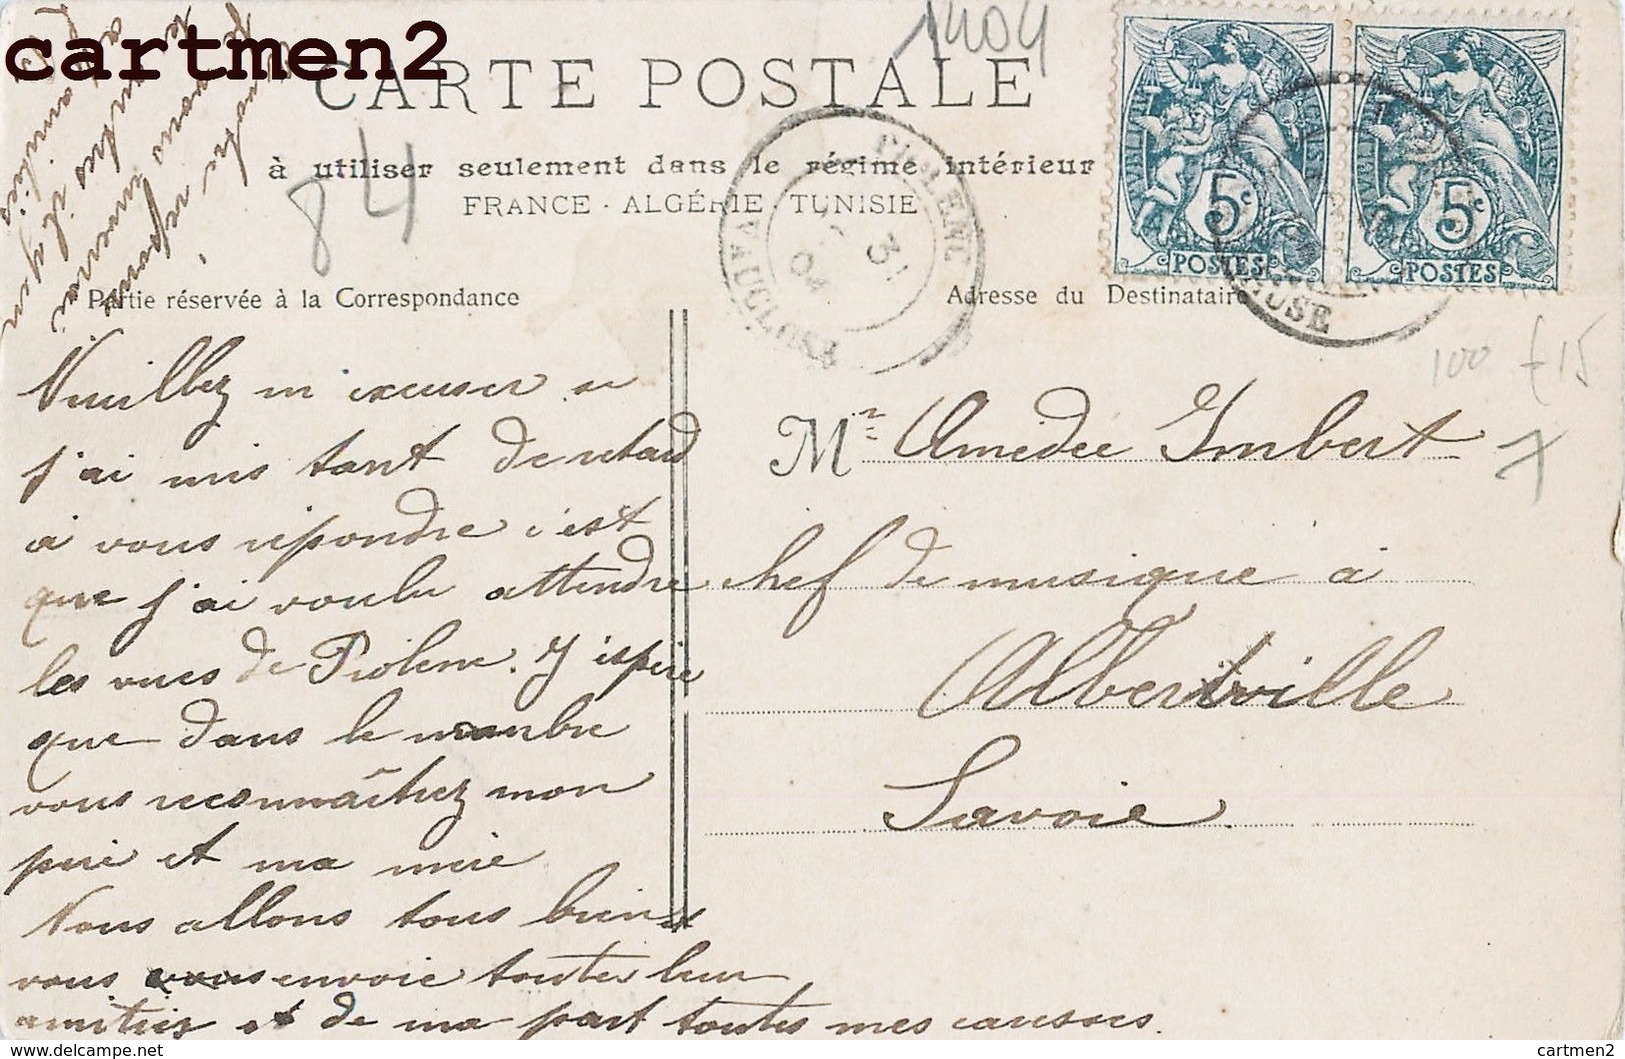 cartmen2
1904
CARTE POSTALE
84
à utiliser seulement dans le régime intérieur
FRANCE - ALGÉRIE - TUNISIE
RÉPUBLIQUE FRANÇAISE
5c
POSTES
5c
POSTES
PIOLENC
31
04
VAUCLUSE
Partie réservée à la Correspondance
Adresse du Destinataire
100
£15
Veuillez m'excuser si
j'ai mis tant de retard
à vous répondre c'est
que j'ai voulu attendre
les vues de Piolenc. J'espère
que dans le nombre
vous reconnaîtrez mon
père et ma mère
Nous allons tous bien et
vous envoie toutes leur
amitiés et de ma part toutes mes caresses.
Mr Amédée Imbert
chef de musique à
Albertville
Savoie